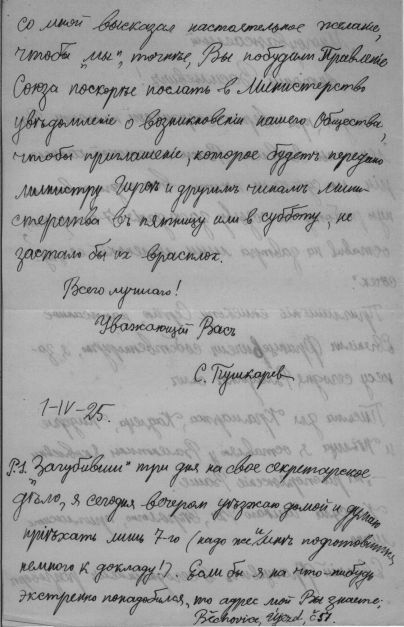 со мной высказал настоятельное желание,
чтобы „мы“, точнѣе, Вы побудили Правленіе
Союза поскорѣе послать в Министерство
увѣдомленіе о возникновеніи нашего Общества,
чтобы приглашеніе, которое будетъ передано
министру Гирсѣ и другимъ чинамъ Мини-
стерства въ пятницу или в субботу, не
застало бы их врасплох.
Всего лучшаго!
Уважающій Васъ
С. Пушкарев
1-IV-25.
P.S. „Загубивши“ три дня на свое секретарское
дѣло, я сегодня вечером уѣзжаю домой и думаю
пріѣхать лишь 7-го (надо же и мнѣ подготовиться
немного к докладу!). Если бы я на что-нибудь
экстренно понадобился, то адрес мой Вы знаете:
Běchovice, Újezd, č 51.